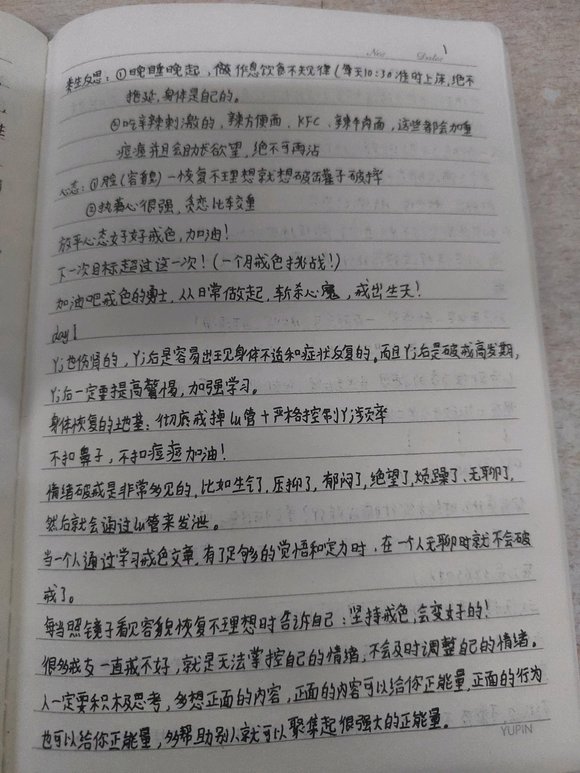 No.
Date
1
养生反思：①晚睡晚起，做作息饮食不规律（每天10:30准时上床，绝不
拖延，身体是自己的。
②吃辛辣刺激的，辣方便面、KFC、辣牛肉面，这些都会加重
痘痘并且会助长欲望，绝不可再沾
心态：①脸（容貌）一恢复不理想就想破罐子破摔
②执着心很强，贪恋比较重
放平心态好好戒色，加油！
下一次目标超过这一次！（一个月戒色挑战！）
加油吧戒色的勇士，从日常做起，斩杀心魔，戒出生天！
day1
Yj也伤肾的，Yj后是容易出现身体不适和症状反复的。而且Yj后是破戒高发期，
Yj后一定要提高警惕，加强学习。
身体恢复的地基：彻底戒掉lu管+严格控制Yj频率
不扣鼻子，不扣痘痘加油！
情绪破戒是非常多见的，比如生气了，压抑了，郁闷了，绝望了，烦躁了、无聊了，
然后就会通过lu管来发泄。
当一个人通过学习戒色文章，有了足够多的觉悟和定力时，在一个人无聊时就不会破
戒了。
每当照镜子看见容貌恢复不理想时告诉自己：坚持戒色，会变好的！
很多戒友一直戒不好，就是无法掌控自己的情绪，不会及时调整自己的情绪。
人一定要积极思考，多想正面的内容，正面的内容可以给你正能量，正面的行为
也可以给你正能量，多帮助别人就可以聚集起很强大的正能量。
YUPIN